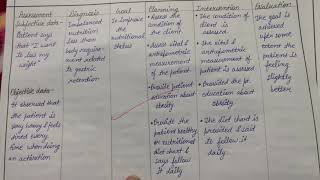 Assessment
Subjective data-
Patient says
that "I want
to loss my
weight"
Objective data-
It observed that
the patient is
very worry & feels
tired every
time when doing
an activation
Diagnosis
Imbalanced
nutrition
less than
body require-
ment related
to gastric
retention
Goal
To improve
the
nutritional
status
Planning
• Assess the
condition of
the client
• Assess vital &
anthropometric
measurement
of the patient
• Provide patient
education about
obesity
• Provide the
patient healthy
or nutritional
diet chart &
says follow
it daily
Intervention
• The condition of
client is
assessed
• Assess vital &
anthropometric
measurement of
patient is
assessed.
• Provided the pt.
education about
obesity
• The diet chart is
provided & said
to follow it
daily.
Evaluation
The goal is
achieved
upto some
extent the
patient is
feeling
slightly
better